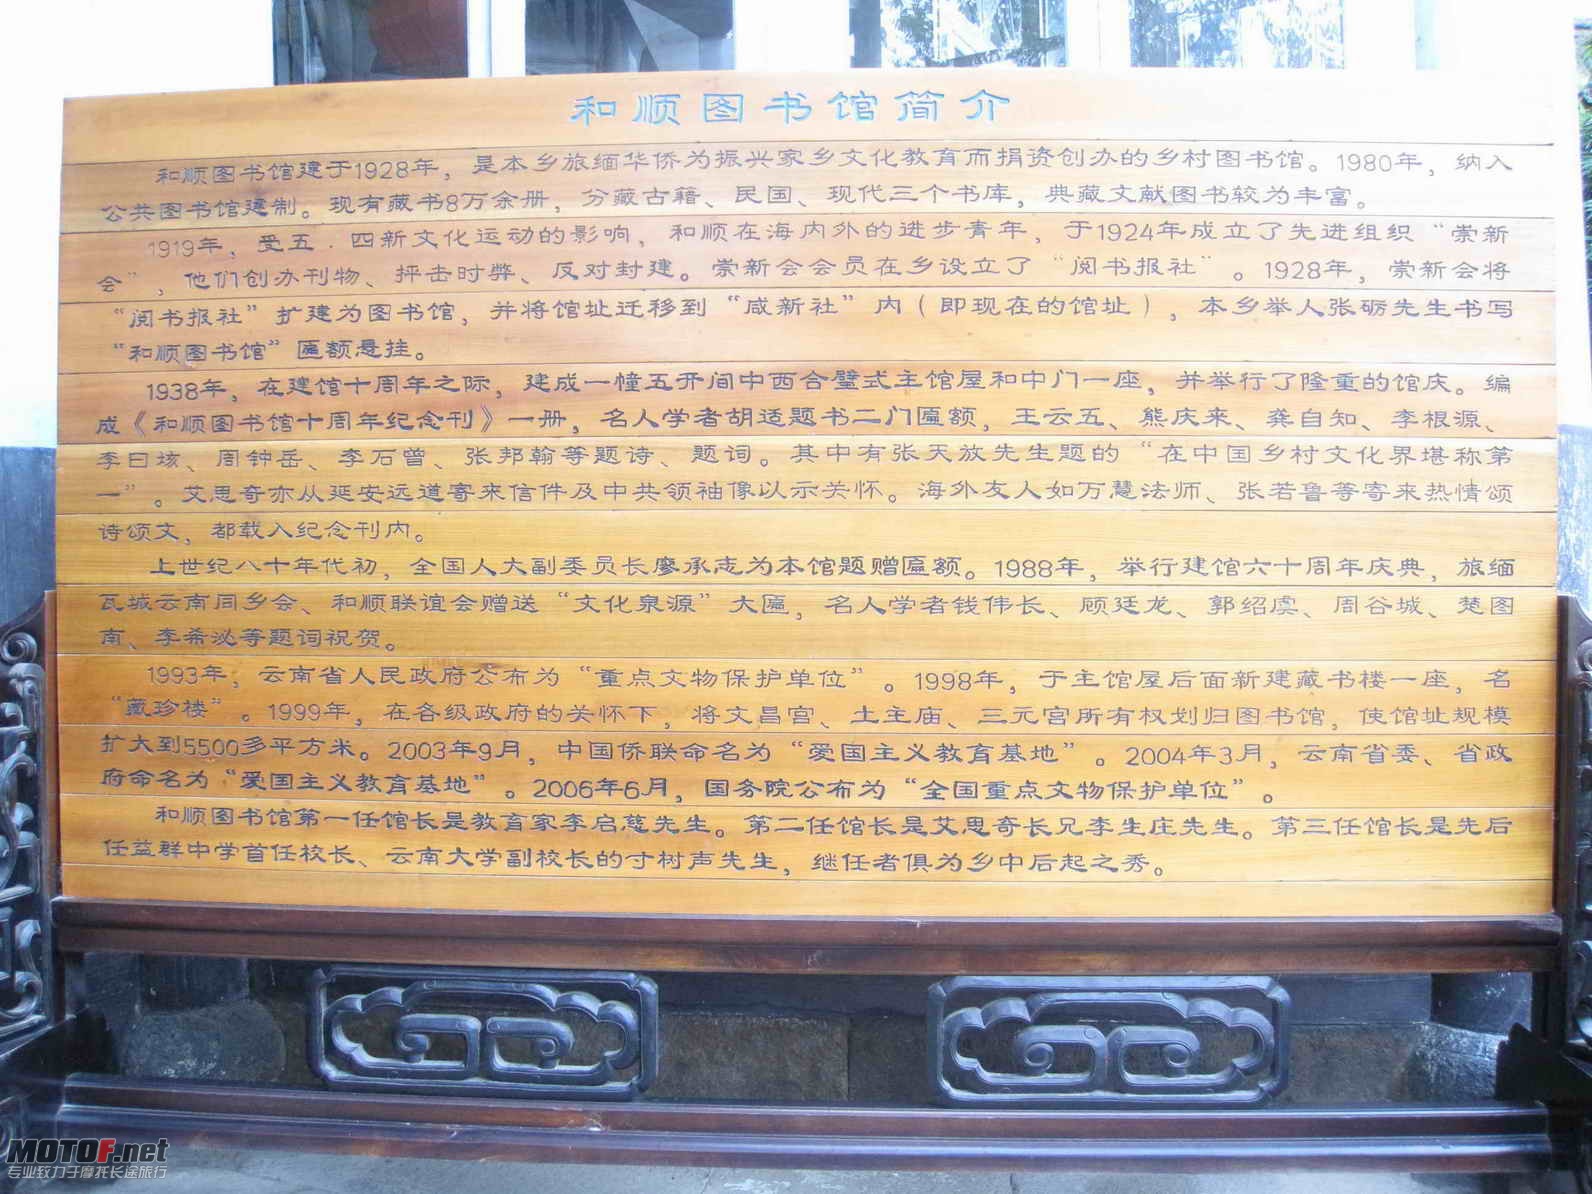 和顺图书馆简介
和顺图书馆建于1928年，是本乡旅缅华侨为振兴家乡文化教育而捐资创办的乡村图书馆。1980年，纳入
公共图书馆建制。现有藏书8万余册，分藏古籍、民国、现代三个书库，典藏文献图书较为丰富。
1919年，受五．四新文化运动的影响，和顺在海内外的进步青年，于1924年成立了先进组织“崇新
会”，他们创办刊物、抨击时弊、反对封建。崇新会会员在乡设立了“阅书报社”。1928年，崇新会将
“阅书报社”扩建为图书馆，并将馆址迁移到“咸新社”内（即现在的馆址），本乡举人张砺先生书写
“和顺图书馆”匾额悬挂。
1938年，在建馆十周年之际，建成一幢五开间中西合璧式主馆屋和中门一座，并举行了隆重的馆庆。编
成《和顺图书馆十周年纪念刊》一册，名人学者胡适题书二门匾额，王云五、熊庆来、龚自知、李根源、
李曰垓、周钟岳、李石曾、张邦翰等题诗、题词。其中有张天放先生题的“在中国乡村文化界堪称第
一”。艾思奇亦从延安远道寄来信件及中共领袖像以示关怀。海外友人如万慧法师、张若鲁等寄来热情颂
诗颂文，都载入纪念刊内。
上世纪八十年代初，全国人大副委员长廖承志为本馆题赠匾额。1988年，举行建馆六十周年庆典，旅缅
瓦城云南同乡会、和顺联谊会赠送“文化泉源”大匾，名人学者钱伟长、顾廷龙、郭绍虞、周谷城、楚图
南、李希泌等题词祝贺。
1993年，云南省人民政府公布为“重点文物保护单位”。1998年，于主馆屋后面新建藏书楼一座，名
“藏珍楼”。1999年，在各级政府的关怀下，将文昌宫、土主庙、三元宫所有权划归图书馆，使馆址规模
扩大到5500多平方米。2003年9月，中国侨联命名为“爱国主义教育基地”。2004年3月，云南省委、省政
府命名为“爱国主义教育基地”。2006年6月，国务院公布为“全国重点文物保护单位”。
和顺图书馆第一任馆长是教育家李启慈先生。第二任馆长是艾思奇长兄李生庄先生。第三任馆长是先后
任益群中学首任校长、云南大学副校长的寸树声先生，继任者俱为乡中后起之秀。
MOTOF.net
专业致力于摩托长途旅行